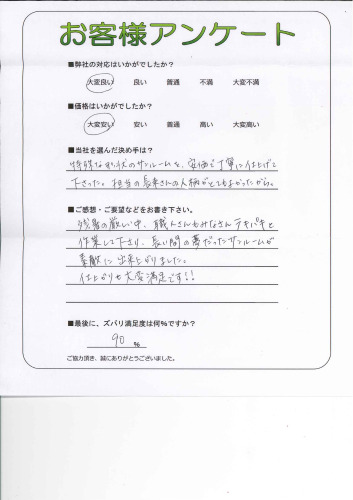 お客様アンケート
■弊社の対応はいかがでしたか？
大変良い 良い 普通 不満 大変不満
■価格はいかがでしたか？
大変安い 安い 普通 高い 大変高い
■当社を選んだ決め手は？
特殊な形状のサンルームを、安価で丁寧に仕上げて
下さった。担当の長来さんの人柄がとてもよかったから。
■ご感想・ご要望などをお書き下さい。
残暑の厳しい中、職人さんもみなさんテキパキと
作業して下さり、長い間の夢だったサンルームが
素敵に出来上がりました。
仕上がりも大変満足です!!
■最後に、ズバリ満足度は何％ですか？
90 %
ご協力頂き、誠にありがとうございました。